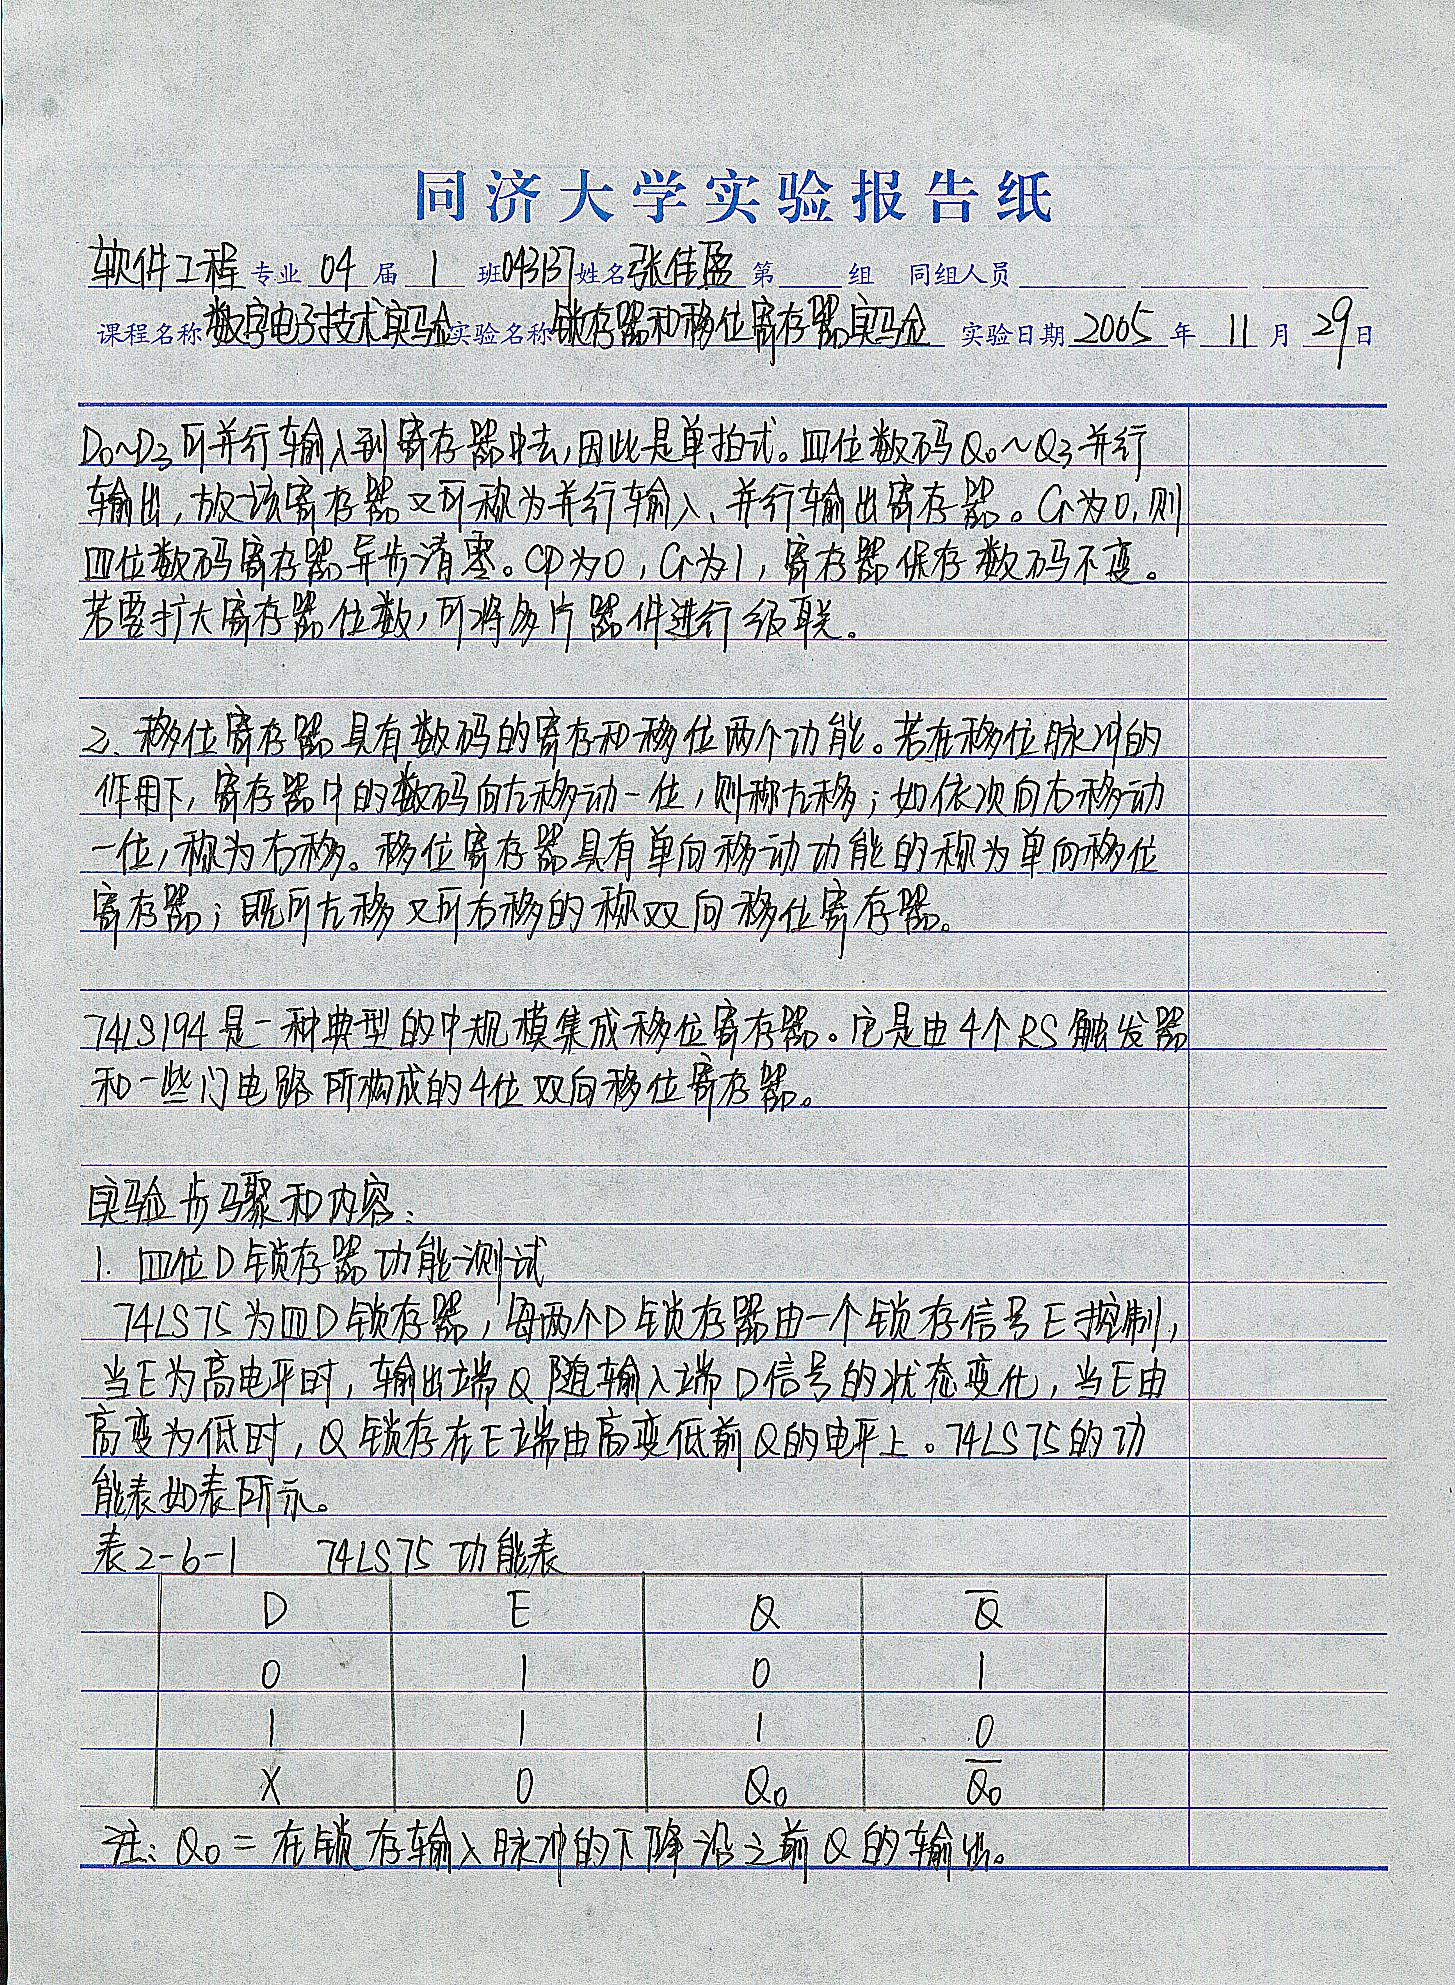 同济大学实验报告纸
软件工程 专业 04 届 1 班 043137 姓名 张佳盈 第 组 同组人员
课程名称 数字电子技术实验 实验名称 锁存器和移位寄存器实验 实验日期 2005 年 11 月 29 日
D0~D3可并行输入到寄存器中去,因此是单拍式。四位数码Q0~Q3并行
输出,故该寄存器又可称为并行输入、并行输出寄存器。Cr为0,则
四位数码寄存器异步清零。CP为0,Cr为1,寄存器保存数码不变。
若要扩大寄存器位数,可将多片器件进行级联。
2. 移位寄存器具有数码的寄存和移位两个功能。若在移位脉冲的
作用下,寄存器中的数码向左移动一位,则称左移;如依次向右移动
一位,称为右移。移位寄存器具有单向移动功能的称为单向移位
寄存器;既可左移又可右移的称双向移位寄存器。
74LS194是一种典型的中规模集成移位寄存器。它是由4个RS触发器
和一些门电路所构成的4位双向移位寄存器。
实验步骤和内容:
1. 四位D锁存器功能测试
74LS75为四D锁存器,每两个D锁存器由一个锁存信号E控制,
当E为高电平时,输出端Q随输入端D信号的状态变化,当E由
高变为低时,Q锁存在E端由高变低前Q的电平上。74LS75的功
能表如表所示。
表2-6-1 74LS75功能表
D E Q Q̅
0 1 0 1
1 1 1 0
X 0 Q0 Q̅0
注:Q0=在锁存输入脉冲的下降沿之前Q的输出。